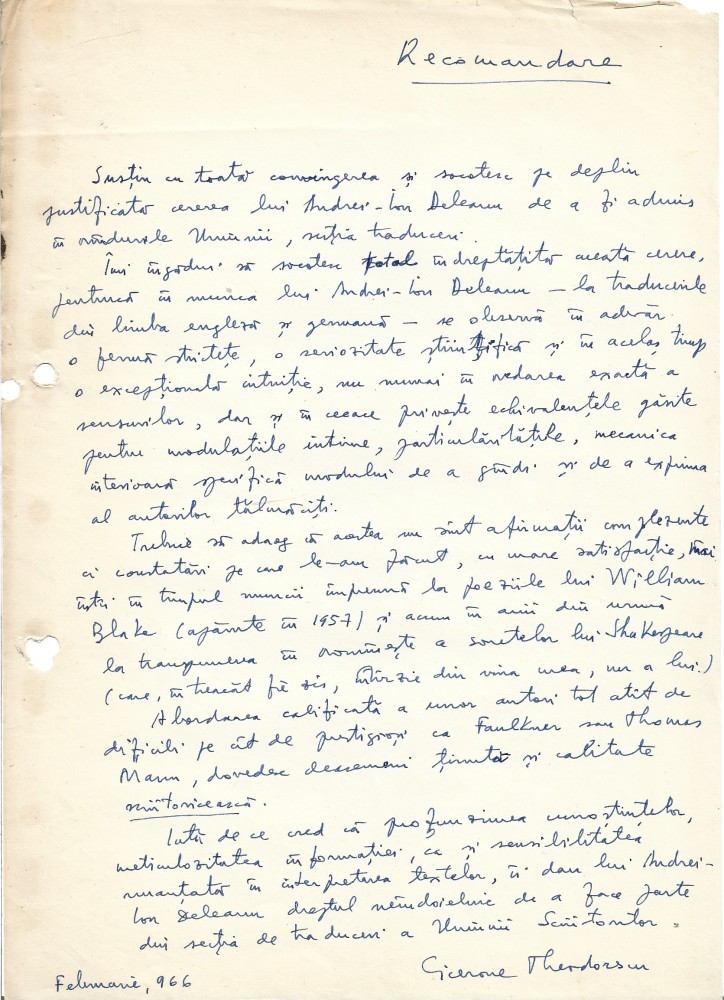 Recomandare
Susțin cu toată convingerea și socotesc pe deplin
justificată cererea lui Andrei-Ion Deleanu de a fi admis
în rîndurile Uniunii, secția traduceri.
Îmi îngădui să socotesc total îndreptățită această cerere,
pentrucă în munca lui Andrei-Ion Deleanu — la traducerile
din limba engleză și germană — se observă în adevăr
o fermă strictețe, o seriozitate științifică și în acelaș timp
o excepțională intuiție, nu numai în redarea exactă a
sensurilor, dar și în ceeace privește echivalențele găsite
pentru modulațiile intime, particularitățile, mecanica
interioară specifică modului de a gîndi și de a exprima
al autorilor tălmăciți.
Trebuie să adaog că acestea nu sînt afirmații complezente
ci constatări pe care le-am făcut, cu mare satisfacție, mai
întîi în timpul muncii împreună la poeziile lui William
Blake (apărute în 1957) și acum în anii din urmă
la transpunerea în romînește a sonetelor lui Shakespeare
(care, în treacăt fie zis, întîrzie din vina mea, nu a lui.)
Abordarea calificată a unor autori tot atît de
dificili pe cît de prestigioși ca Faulkner sau Thomas
Mann, dovedesc deasemeni ținută și calitate
scriitoricească.
Iată de ce cred că profunzimea cunoștințelor,
meticulozitatea informației, ca și sensibilitatea
nuanțată în interpretarea textelor, îi dau lui Andrei-
Ion Deleanu dreptul neîndoielnic de a face parte
din secția de traduceri a Uniunii Scriitorilor.
Cicerone Theodorescu
Februarie, 966